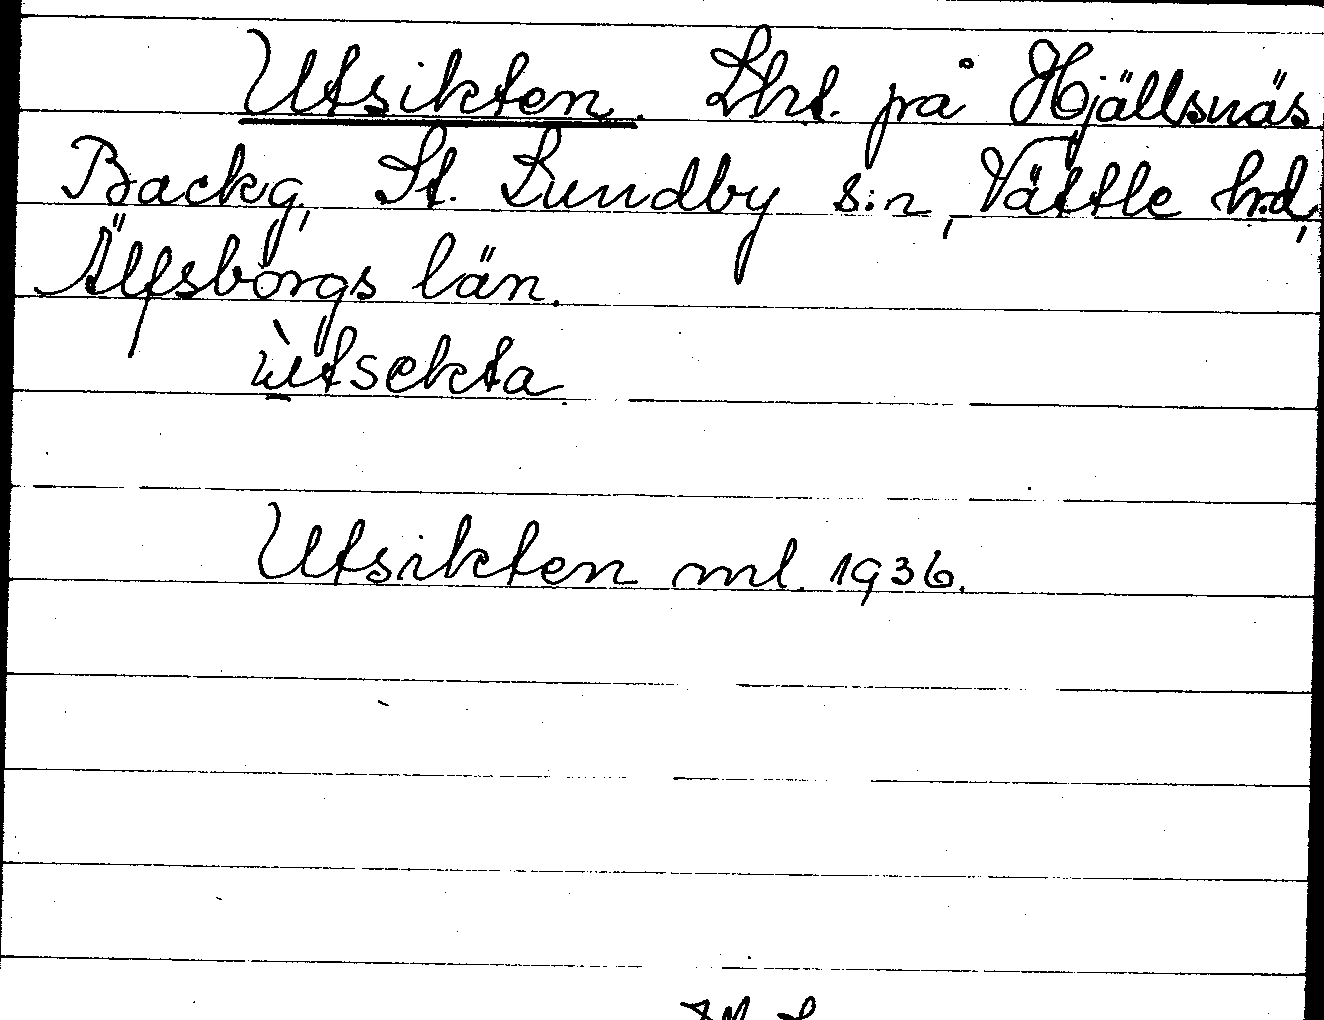 Utsikten. Lht. på Hjällsnäs
Backg, St. Lundby s:n, Vättle hd,
Älfsborgs län.
ùtsekta.
Utsikten ml. 1936.